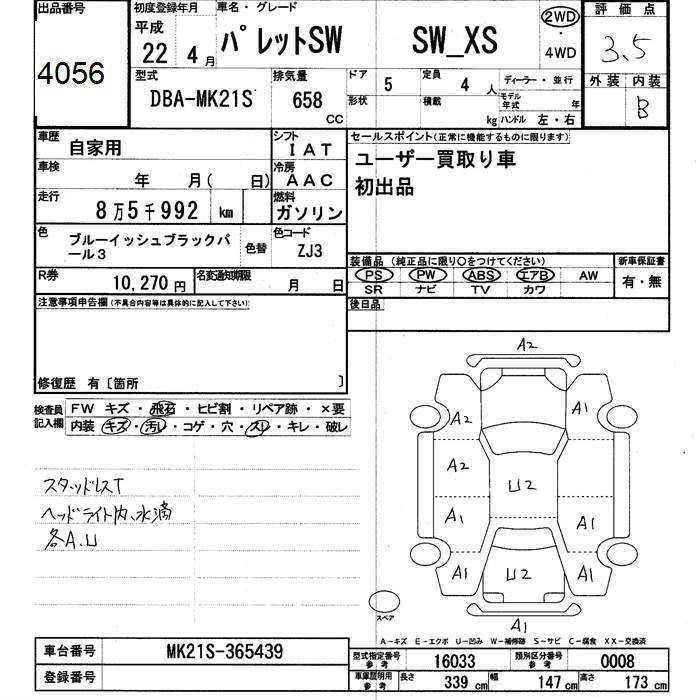 出品番号 初度登録年月 車名・グレード 2WD 評価点
4056 平成 22 4月 パレットSW SW_XS ・ 4WD 3.5
型式 DBA-MK21S 排気量 658 CC ドア 5 定員 4 人 ディーラー・並行 外装 内装
形状 積載 kg モデル年式 年 ハンドル 左・右 B
車歴 自家用 シフト IAT セールスポイント(正常に機能するものに限ります)
車検 年 月( 日) 冷房 AAC ユーザー買取り車
走行 8万5千992 km 燃料 ガソリン 初出品
色 ブルーイッシュブラックパール3 色替 色コード ZJ3
装備品(純正品に限り○をつけてください) 新車保証書
R券 10,270円 名変通知期限 月 日 PS PW ABS エアB AW 有・無
SR ナビ TV カワ
注意事項申告欄(不具合内容等は具体的に記入して下さい) 後日品
修復歴 有〔箇所 〕
検査員記入欄 FW キズ・飛石・ヒビ割・リペア跡・×要
内装 キズ・汚レ・コゲ・穴・スレ・キレ・破レ
スタッドレスT
ヘッドライト内、水滴
各A.U
A2
A2 A1
A2
U2
A1 A1
A1 U2 A1
スペア A1
A-キズ E-エクボ U-凹み W-補修跡 S-サビ C-腐食 XX-交換済
車台番号 MK21S-365439 型式指定番号参考 16033 類別区分番号参考 0008
登録番号 車庫証明用参考 長さ 339cm 幅 147cm 高さ 173cm